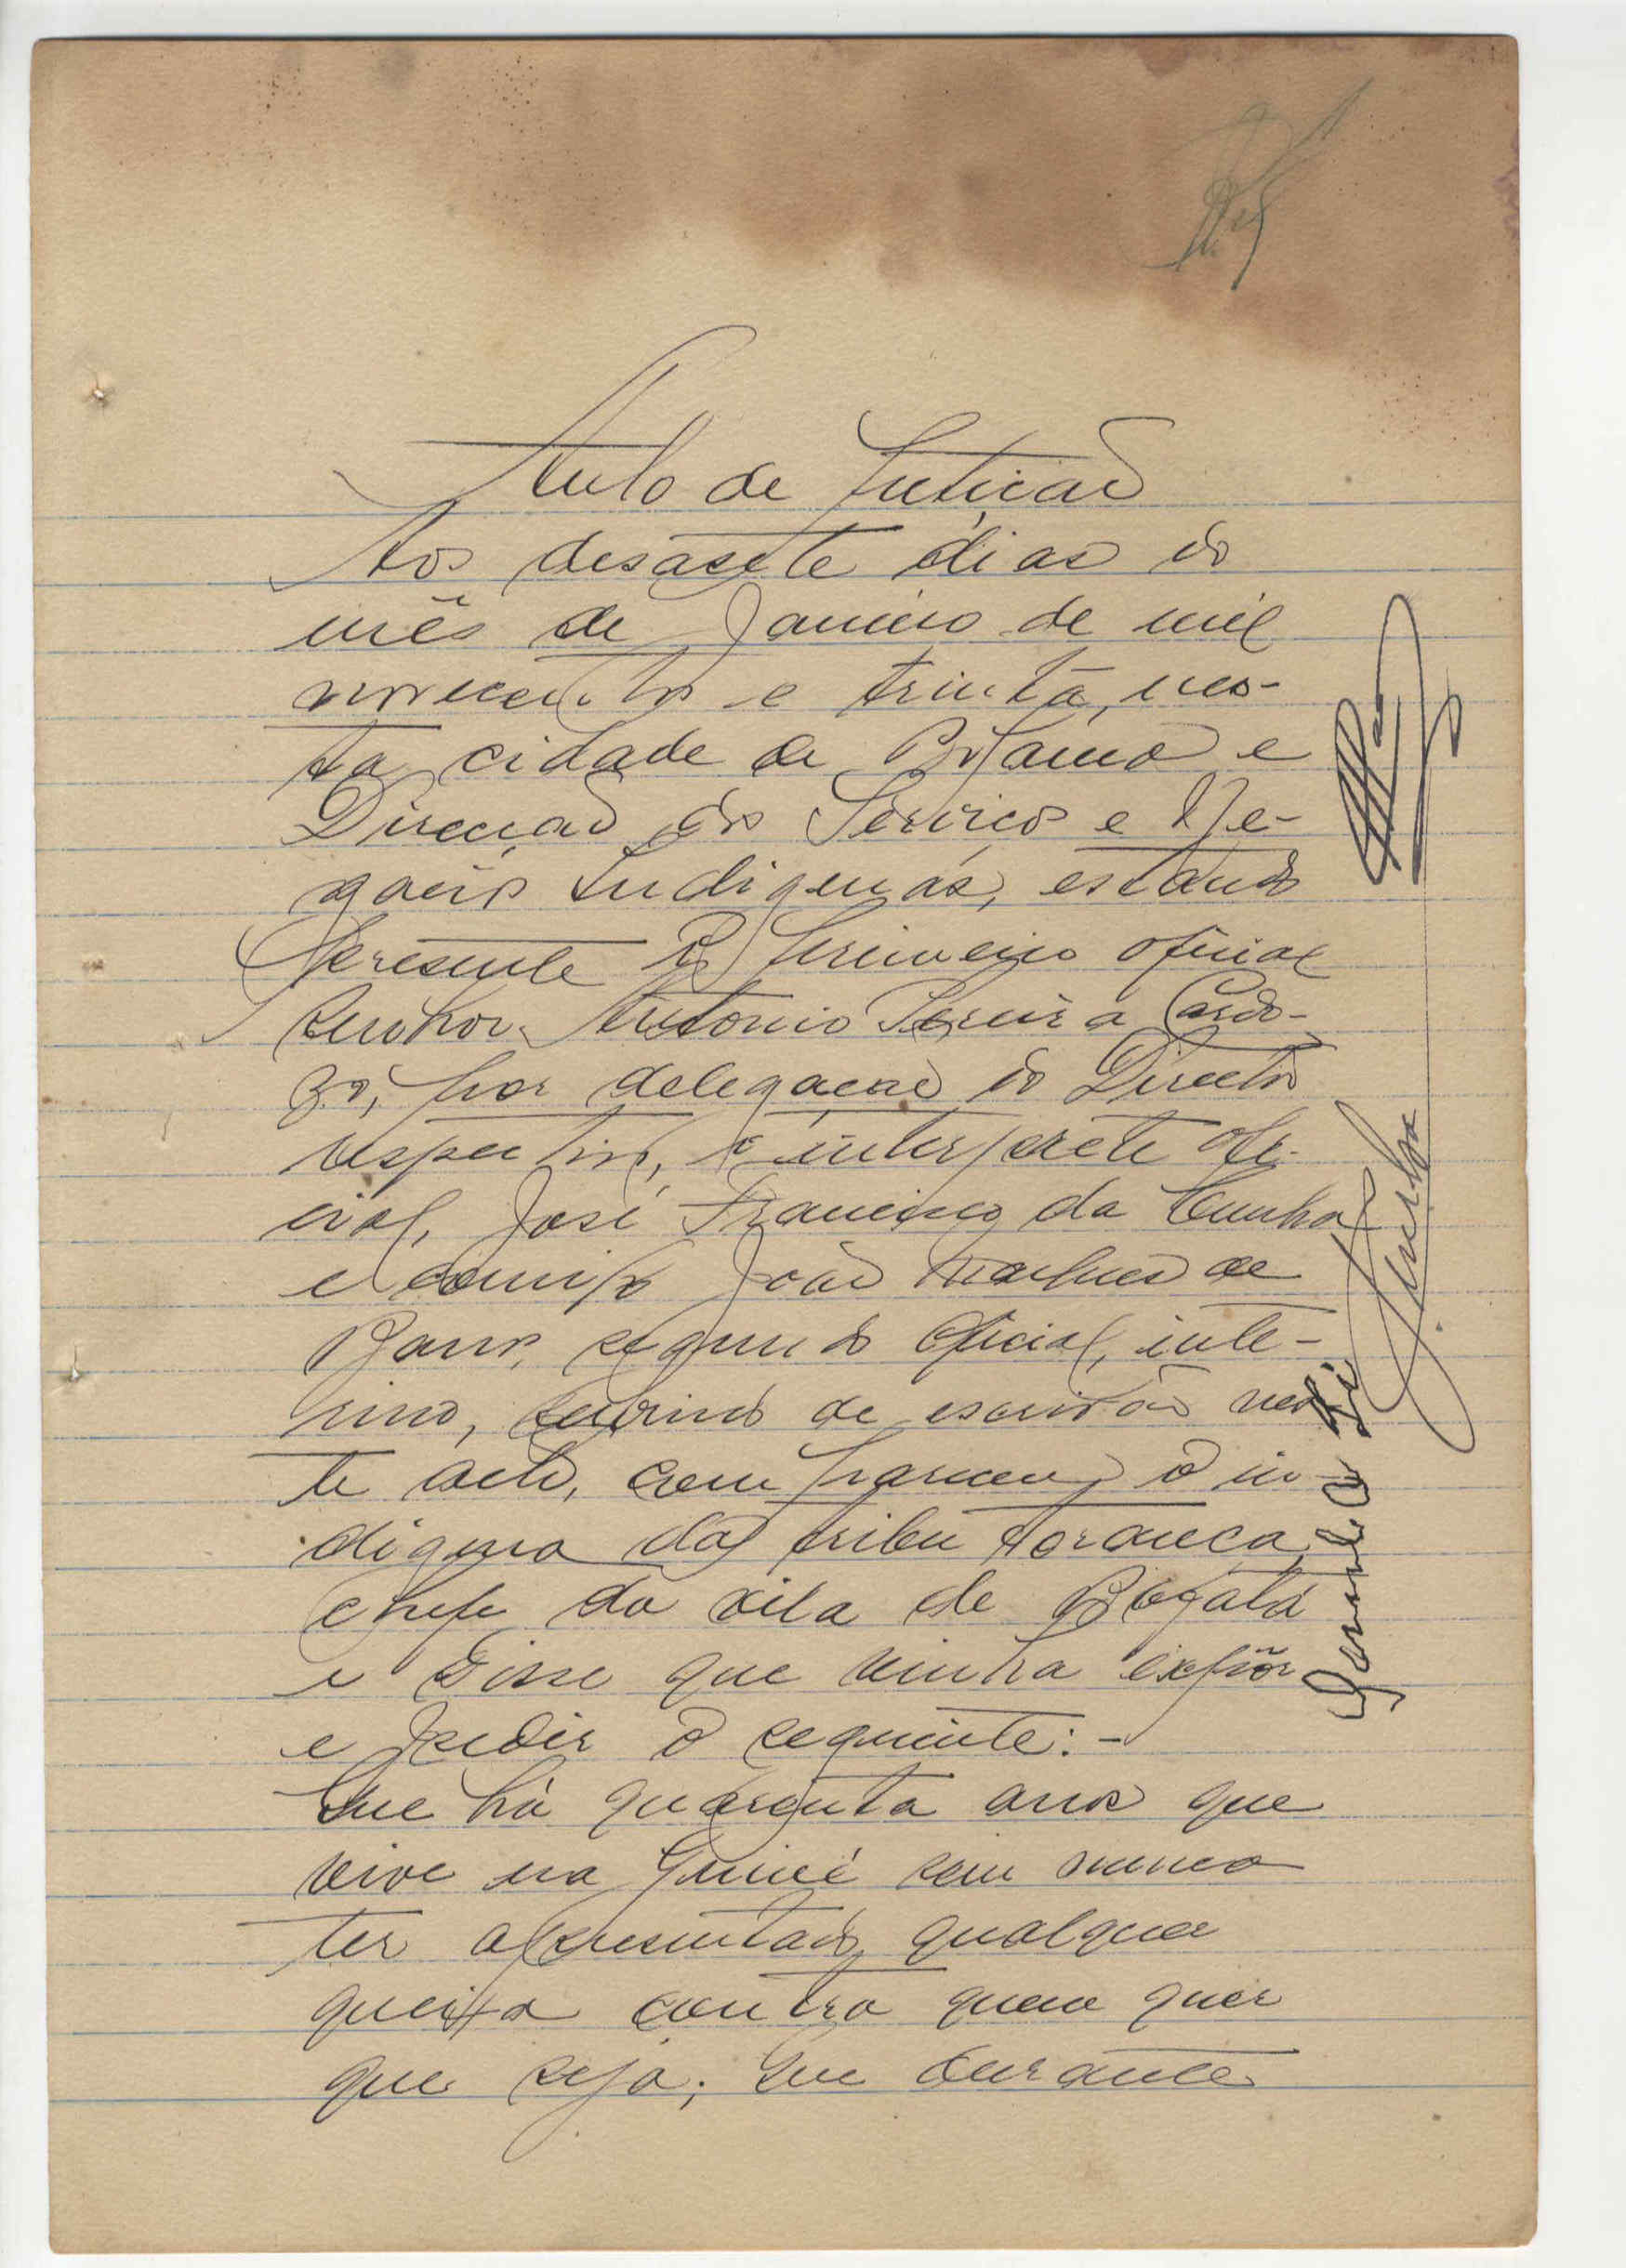 Auto de petição
Aos desasete dias do
mês de Janeiro de mil
novecentos e trinta, nes-
ta cidade de Bolama e
Direcção dos Serviços e Ne-
gocios Indigenas, estando
presente o primeiro oficial
Senhor Antonio Pereira Cardo-
zo, por delegação do Director
respectivo, o interprete ofi-
cial, José Francisco da Cunha
e comigo João de
Barros, segundo oficial, inte-
rino, servindo de escrivão nes-
te acto, compareceu o in-
digena da tribu
chefe da vila de
e disse que vinha expôr
e pedir o seguinte: -
Que há quarenta anos que
vive na Guiné sem nunca
ter apresentado qualquer
queixa contra quem quer
que seja; que durante
Cunha